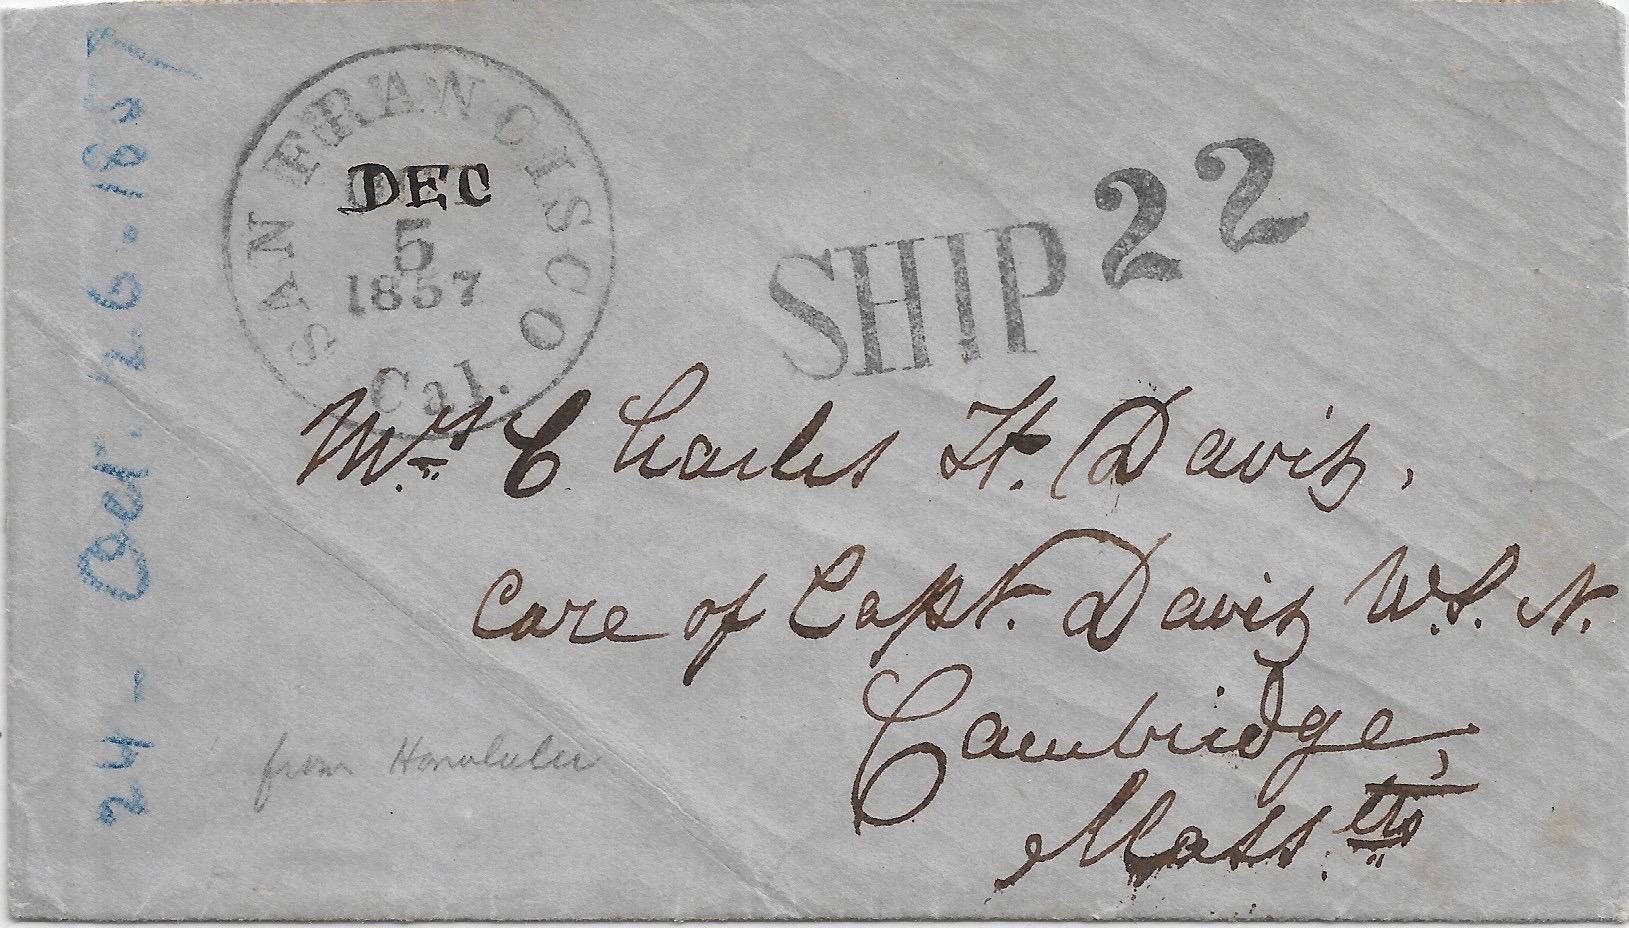 SAN FRANCISCO
DEC
5
1857
Cal.
SHIP 22
Mrs. Charles H. Davis,
Care of Capt. Davis U.S.N.
Cambridge,
Mass.tts
from Honolulu
24 - Oct. 26 - 1857